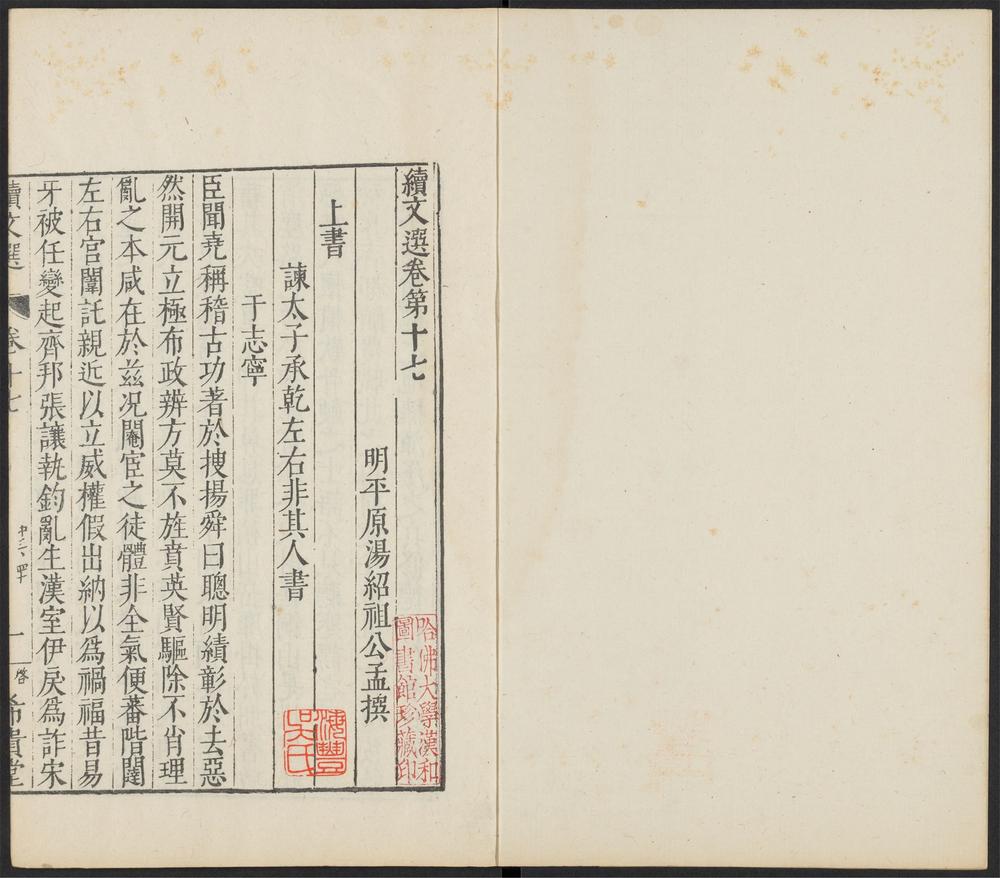 續文選卷第十七
明平原湯紹祖公孟撰
上書
諫太子承乾左右非其人書
于志寧
臣聞堯稱稽古功著於搜揚舜曰聰明績彰於去惡
然開元立極布政辨方莫不旌賁英賢驅除不肖理
亂之本咸在於兹况閹宦之徒體非全氣便蕃階闥
左右宮闈託親近以立威權假出納以爲禍福昔易
牙被任變起齊邦張讓執鈞亂生漢室伊戾爲詐宋
續文選 卷十七 一 希貴堂
哈佛大學漢和
圖書館珍藏印
海豐
吳氏